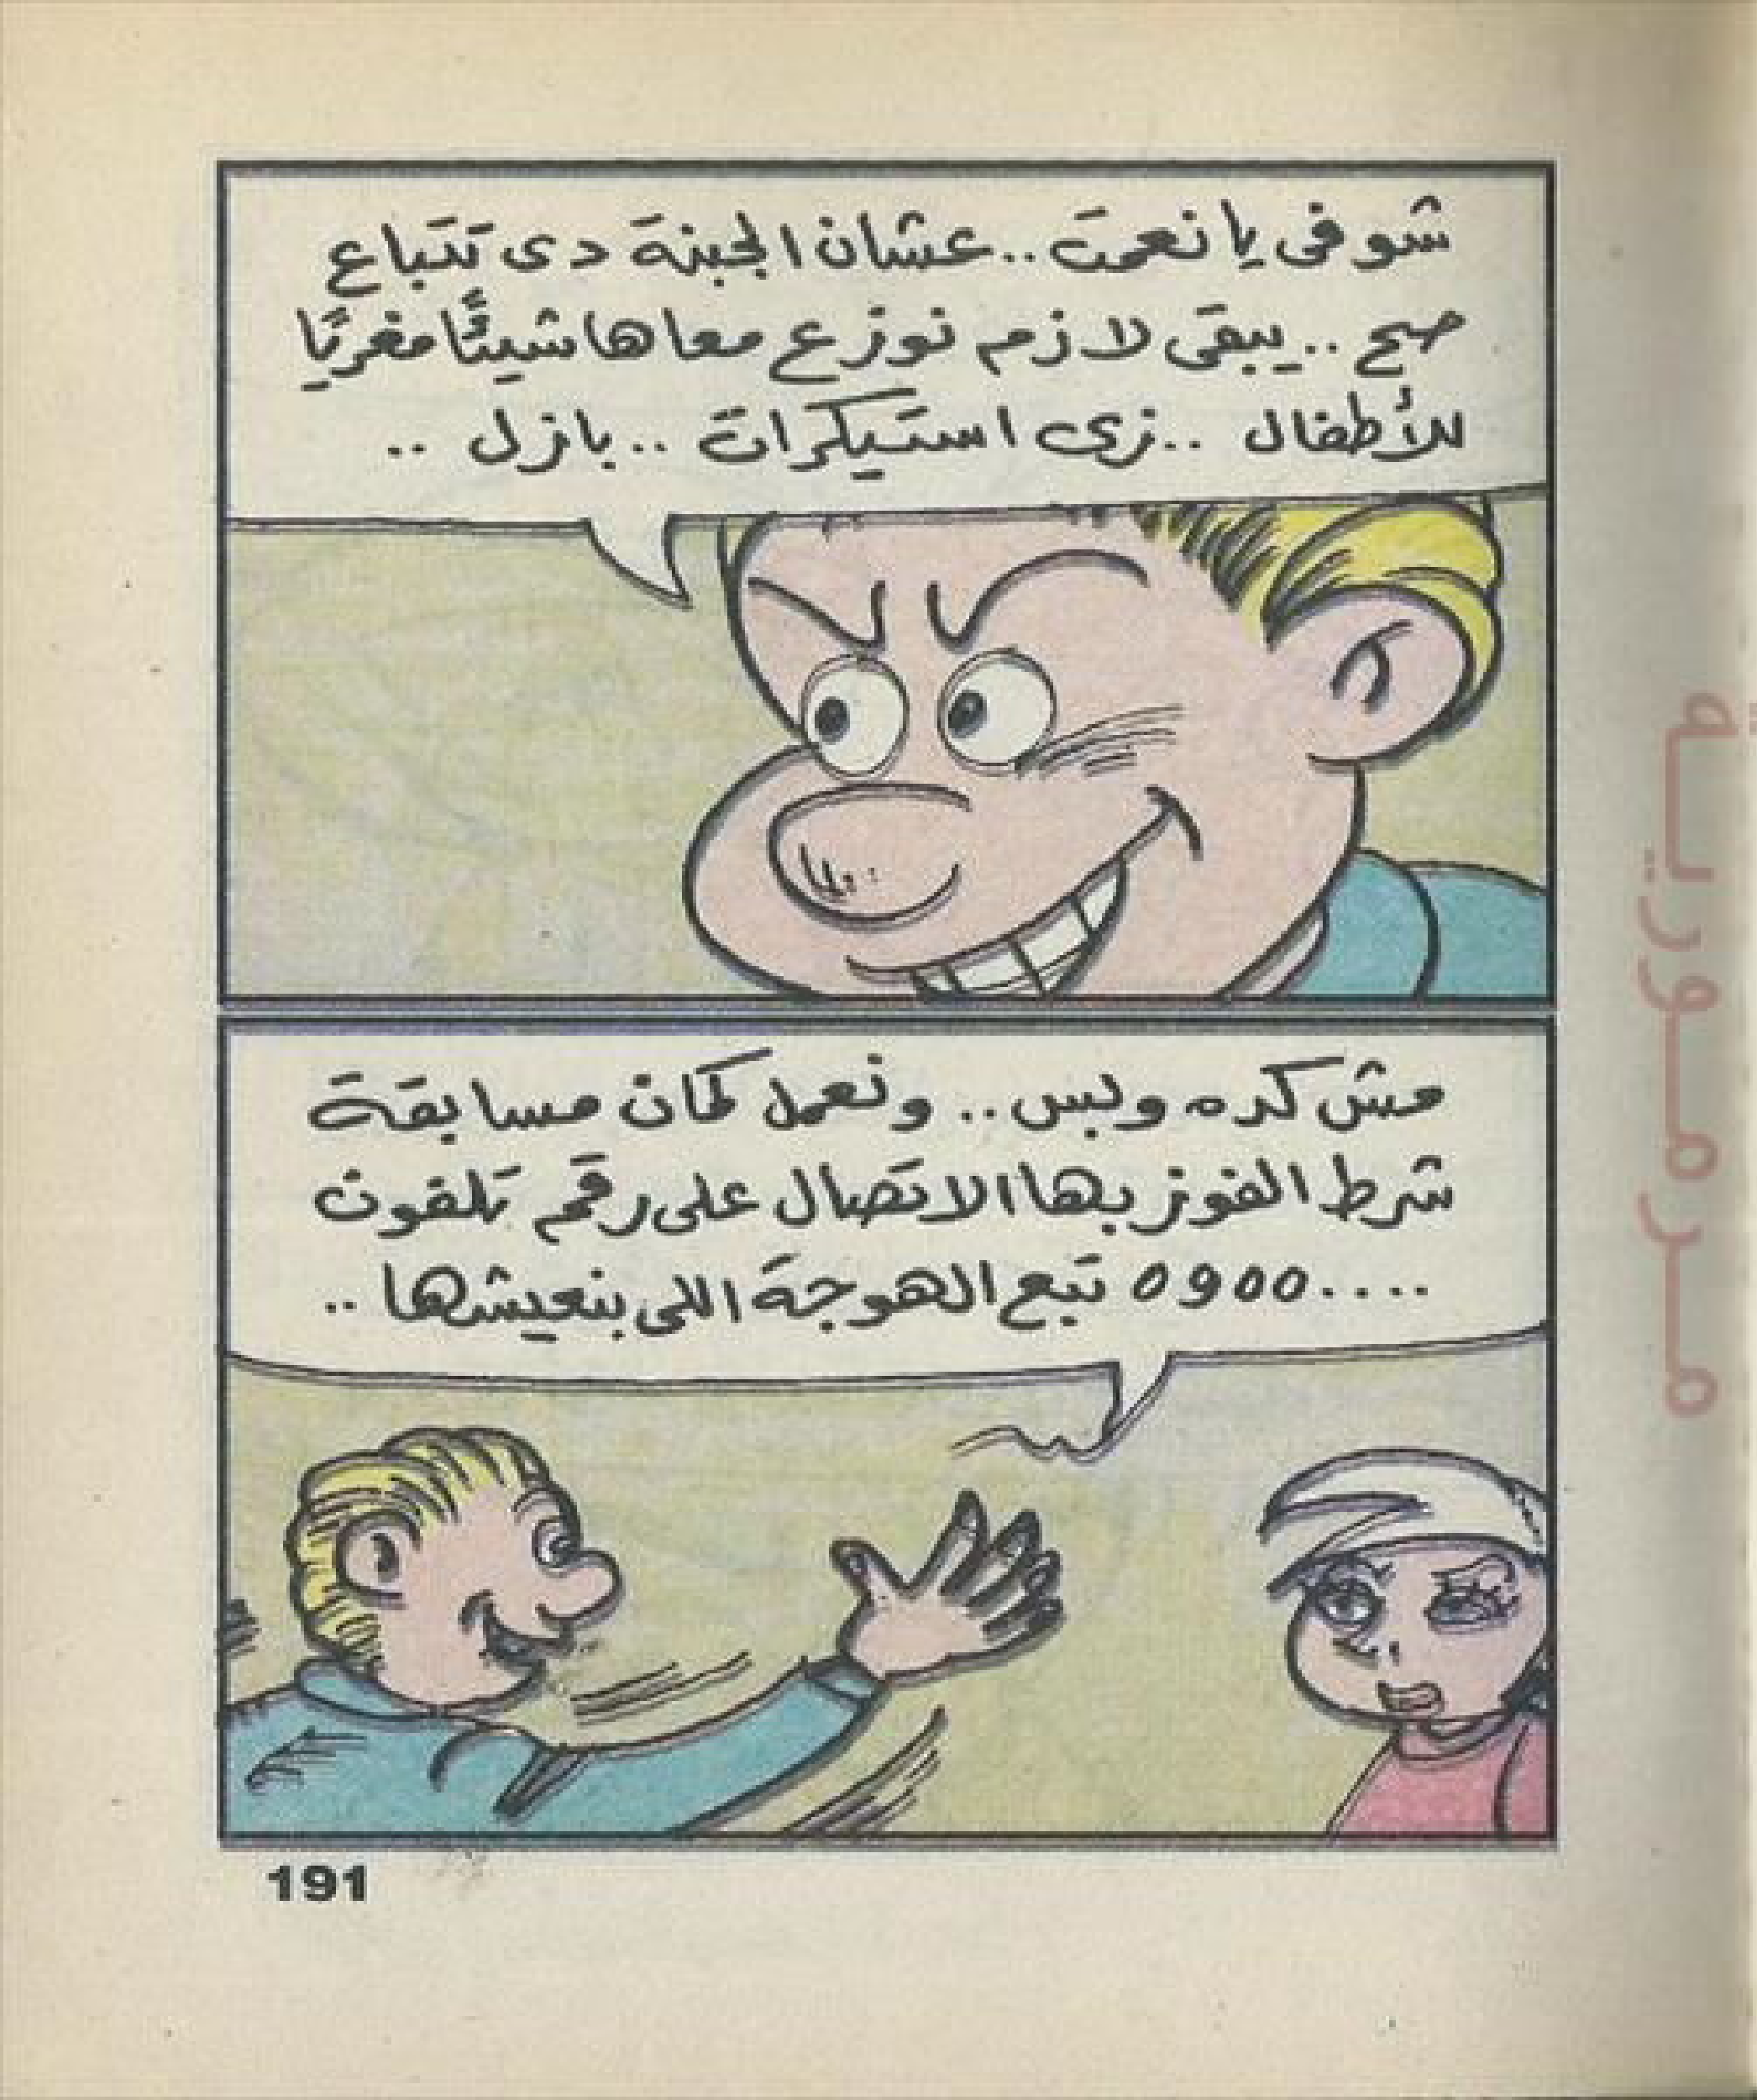 شوفى يا نعمت .. عشان الجبنة دى تتباع
صح .. يبقى لازم نوزع معاها شيئًا مغريًا
للأطفال .. زى استيكرات .. بازل ..
مش كده وبس .. ونعمل كمان مسابقة
شرط الفوز بها الاتصال على رقم تلفون
٥٩٥٥.... تبع الهوجة اللى بنعيشها ..
191
مرمورية